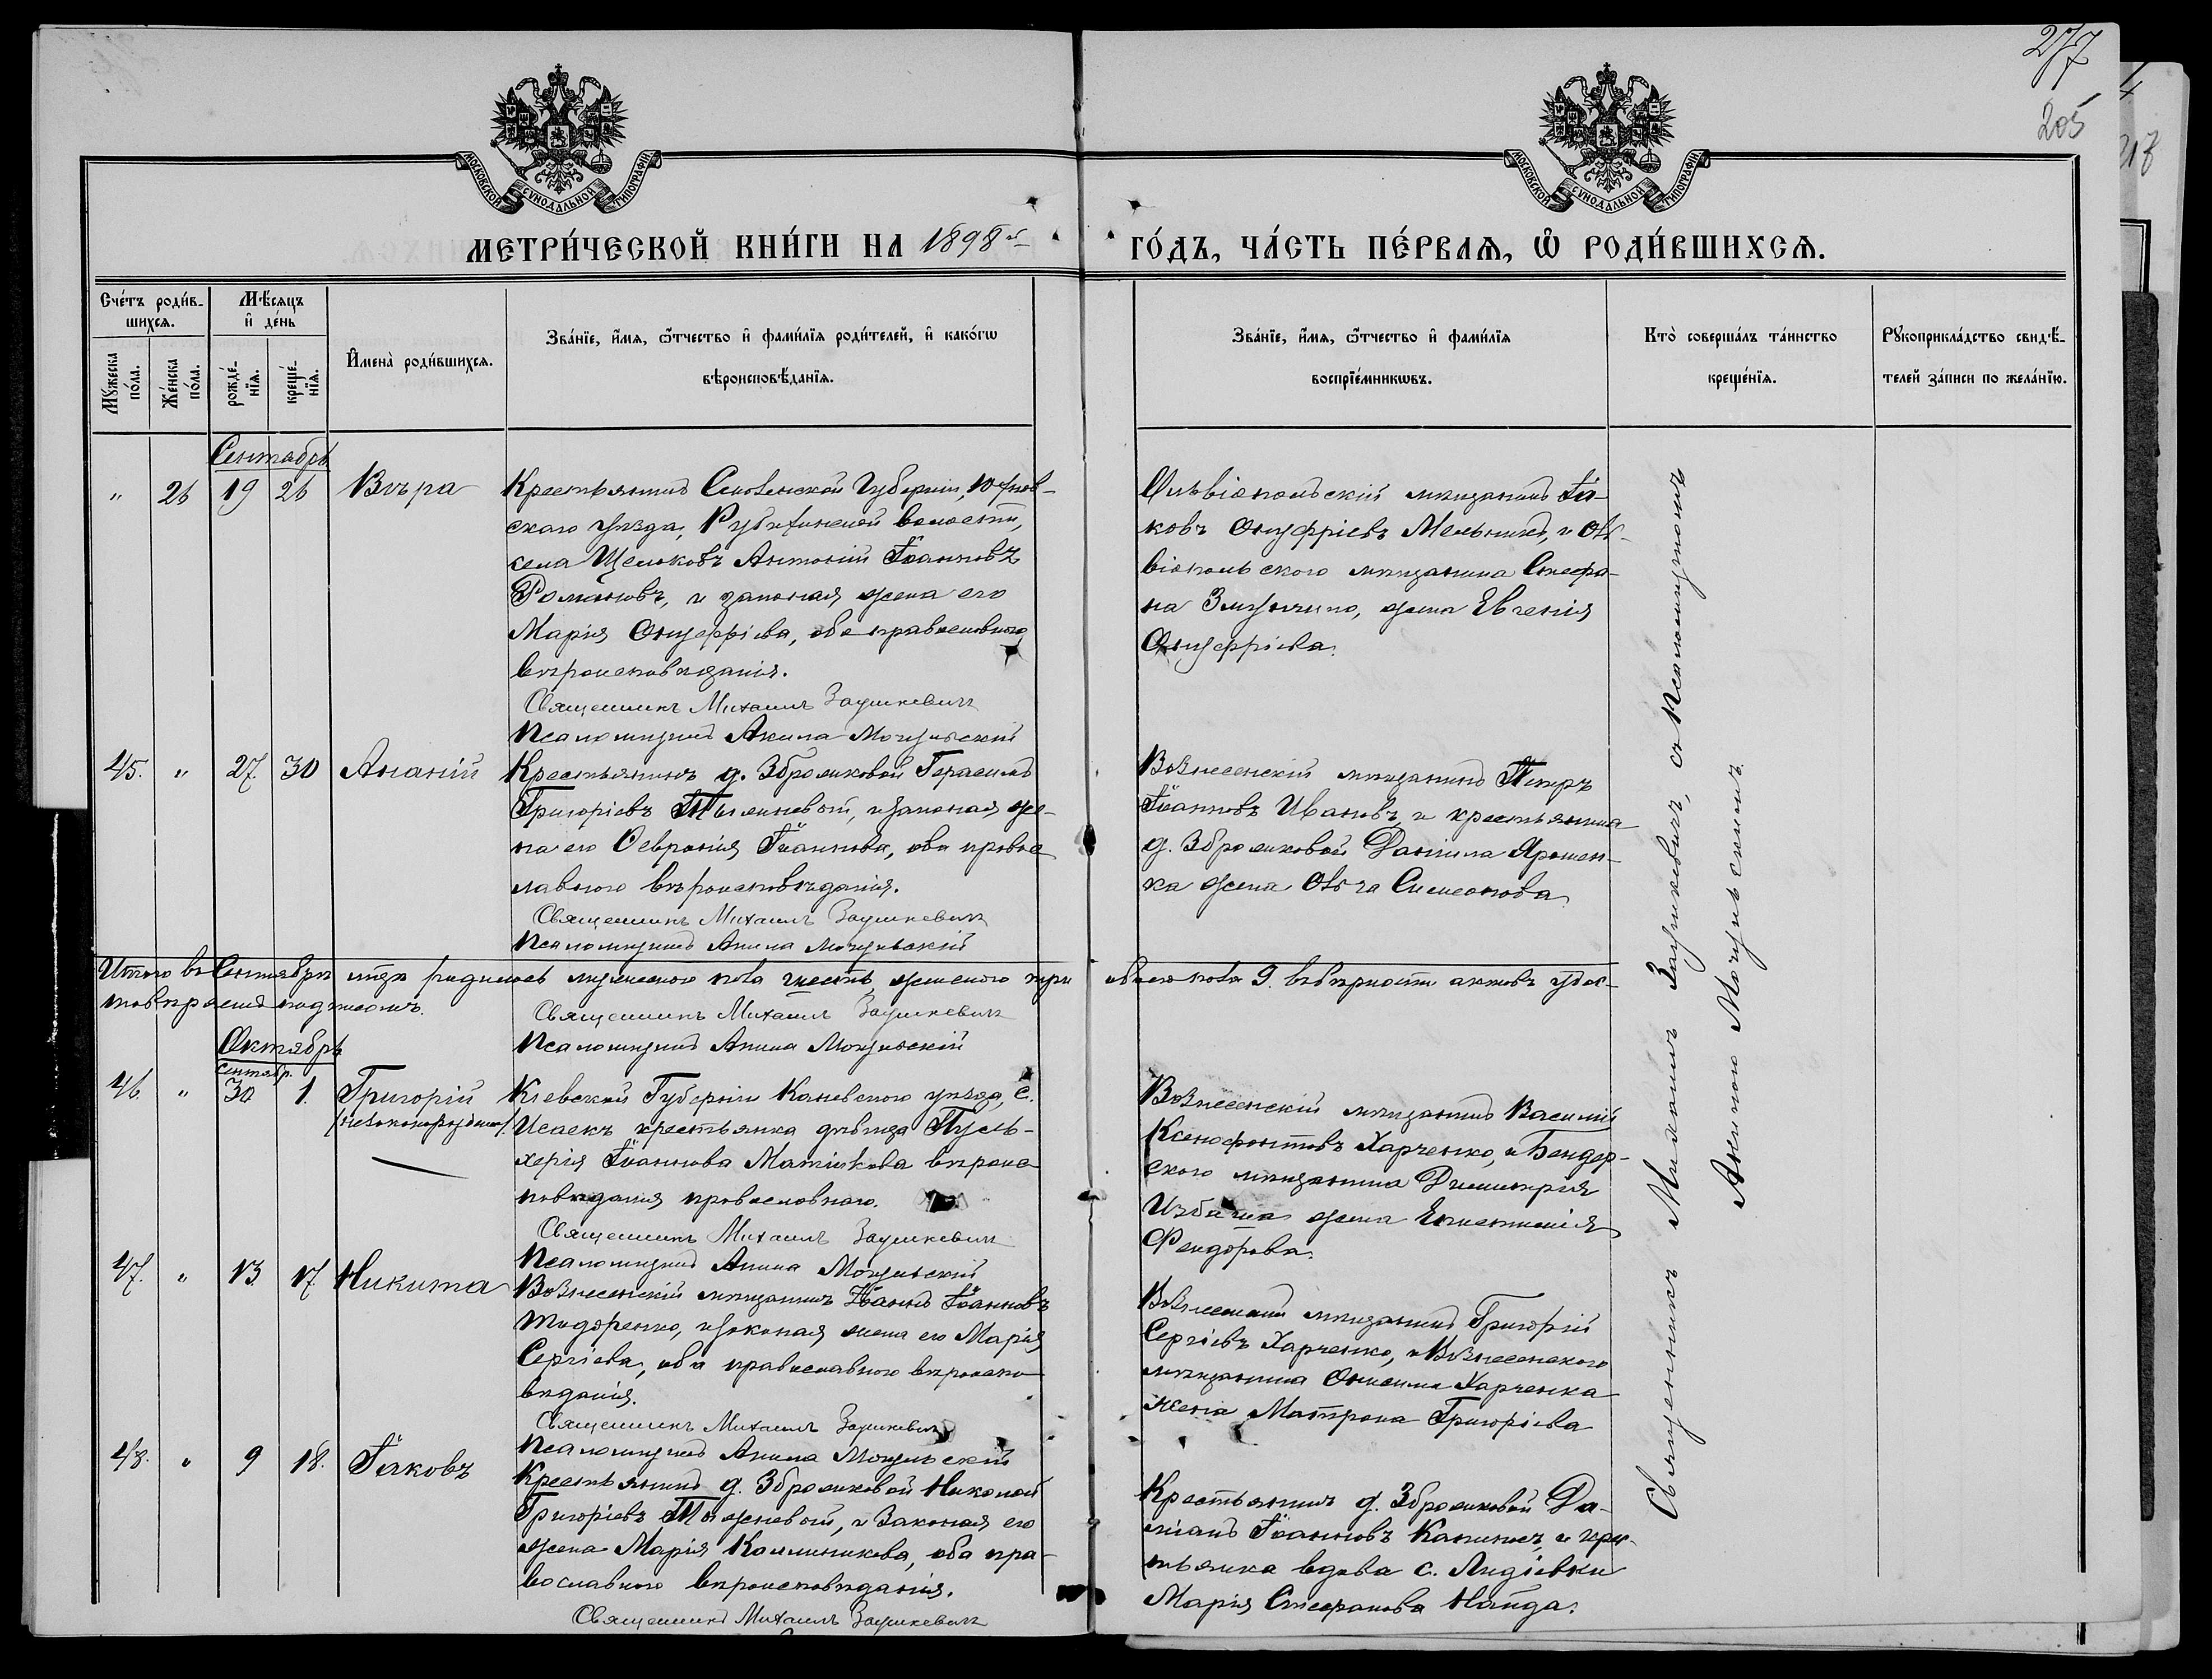 277
205
МОСКОВСКОЙ СѴНОДАЛЬНОЙ ТИПОГРАФІИ
МОСКОВСКОЙ СѴНОДАЛЬНОЙ ТИПОГРАФІИ
МЕТРИ́ЧЕСКОЙ КНИ́ГИ НА 1898й ГО́ДЪ, ЧА́СТЬ ПЕ́РВАѦ, Ѽ РОДИ́ВШИХСѦ.
Сче́тъ роди́в-
шихсѧ.
Мꙋ́жеска по́ла.
Же́нска по́ла.
Мѣ́сѧцъ
и҆ де́нь
рожде́-
нїѧ.
креще́-
нїѧ.
И҆мена̀ роди́вшихсѧ.
Зва́нїе, и҆́мѧ, ѻ҆́тчество и҆ фами́лїѧ роди́телей, и҆ како́гѡ
вѣроисповѣ́данїѧ.
Зва́нїе, и҆́мѧ, ѻ҆́тчество и҆ фами́лїѧ
воспрїе́мникѡвъ.
Кто̀ соверша́лъ та́инство
креще́нїѧ.
Рꙋкоприкла́дство свидѣ́-
телей за́писи по жела́нїю.
Сентябрь
" 26 19 26 Вѣра
Крестьянинъ Смоленской Губерніи, Юхнов-
скаго уѣзда, волости,
села Щелоковъ Антоній Іоанновъ
Романовъ, и законая жена его
Марія Онуфріева, оба православного
вѣроисповѣданія.
Священникъ Михаилъ Заушкевичъ
Псаломщикъ Акила Могульскій
Ольвіопольскій мѣщанинъ Іа-
ковъ Онуфріевъ Мельникъ, и Оль-
віопольского мѣщанина Стефа-
на жена Евгенія
Онуфріева.
45. " 27 30 Ананій
Крестьянинъ д. Зброшковой Герасимъ
Григоріевъ и законая же-
на его Февронія Іоаннова, оба правос
лавного вѣроисповѣданія.
Священникъ Михаилъ Заушкевичъ
Псаломщикъ Акила Могульскій
Вознесенскій мѣщанинъ Петръ
Іоанновъ Ивановъ, и крестьянина
д. Зброшковой Даніила Ярошен-
ка жена Ольга Симеонова
Итого въ Сентябрѣ м-цѣ родилось мужескаго пола шесть женского три обоего пола 9. въ вѣрности актовъ удос-
товѣряемъ подписомъ.
Священникъ Михаилъ Заушкевичъ
Псаломщикъ Акила Могульскій
Октябрь
Сентябр.
46. " 30 1. Григорій
/незаконорожден/
Кіевской Губерніи Каневского уѣзда, с.
Исаекъ крестьянка дѣвица Пуль-
херія Іоаннова вѣроис
повѣданія православного.
Священникъ Михаилъ Заушкевичъ
Псаломщикъ Акила Могульскій
Вознесенскій мѣщанинъ Василій
Ксенофонтовъ Харченко, и Бендер-
ского мѣщанина Димитрія
жена
Феодорова.
47. " 13 17 Никита
Вознесенскій мѣщанинъ Іоаннъ Іоанновъ
Тодоренко, и законая жена его Марія
Сергіева, оба православного вѣроиспо
вѣданія.
Священникъ Михаилъ Заушкевичъ
Псаломщикъ Акила Могульскій
Вознесенскій мѣщанинъ Григорій
Сергіевъ Харченко, и Вознесенского
мѣщанина Онисима Харченка
жена Матрона Григоріева
48. " 9 18. Іаковъ
Крестьянинъ д. Зброшковой Николай
Григоріевъ и Законая его
жена Марія Каллиникова, оба пра-
вославного вѣроисповѣданія.
Священникъ Михаилъ Заушкевичъ
Крестьянинъ д. Зброшковой Да-
міанъ Іоанновъ и крес-
тьянка вдова с. Лидіевки
Марія Стефанова Найда.
Священникъ Михаилъ Заушкевичъ, съ Псаломщикомъ
Акилою Могульскимъ.